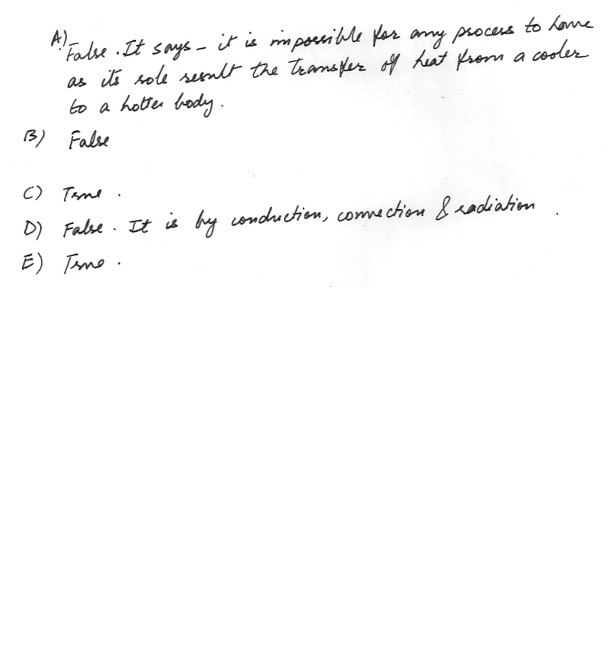 A) False. It says - it is impossible for any process to have
as its sole result the transfer of heat from a cooler
to a hotter body.
B) False
C) True.
D) False. It is by conduction, convection & radiation.
E) True.